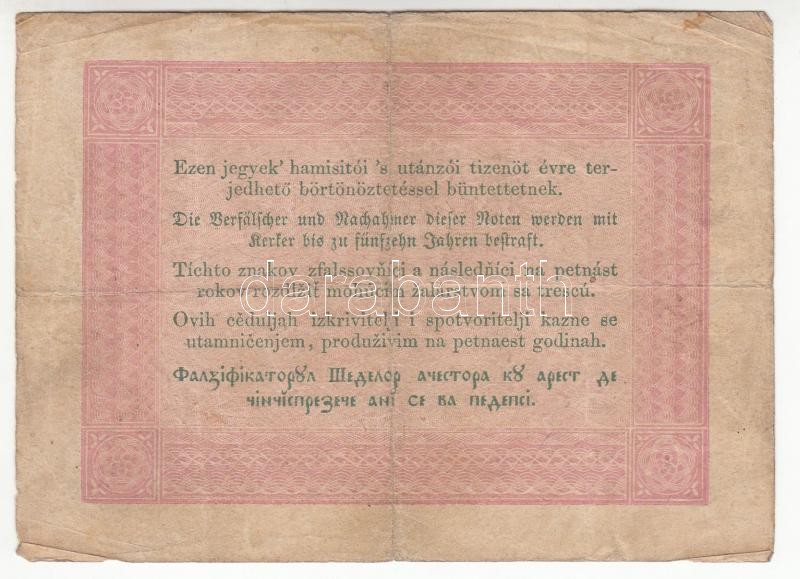 Ezen jegyek' hamisitói 's utánzói tizenöt évre ter-
jedhető börtönöztetéssel büntettetnek.
Die Verfälscher und Nachahmer dieser Noten werden mit
Kerker bis zu fünfzehn Jahren bestraft.
Tíchto znakov zfalssovňíci a následňíci na petnást
rokov rozďlžiť možúcim žalárstvom sa trescú.
darabanth
Ovih cěduljah izkrivitelji i spotvoritelji kazne se
utamničenjem, produživim na petnaest godinah.
Фалꙁіфікаторꙋл Шеделор ачестора кꙋ арест де
чінчіспреꙁече ані се ва педепсі.